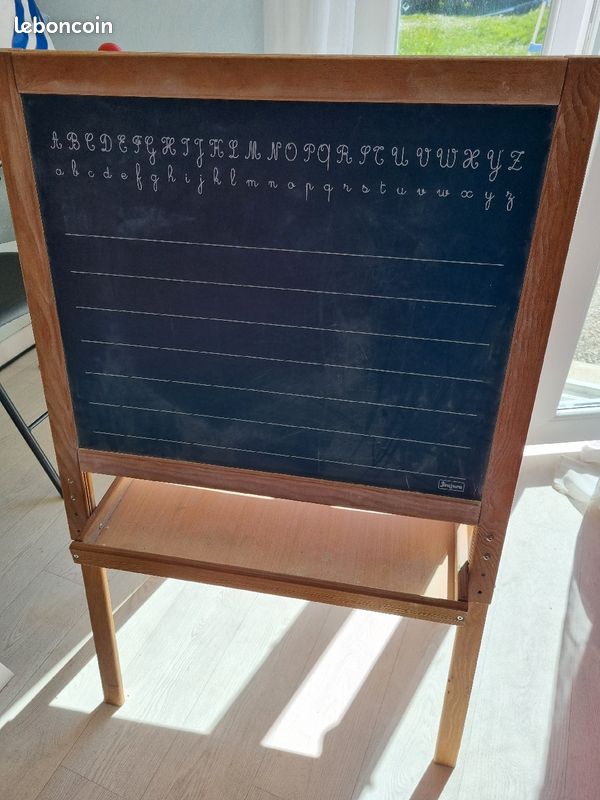 leboncoin
A B C D E F G H I J K L M N O P Q R S T U V W X Y Z
a b c d e f g h i j k l m n o p q r s t u v w x y z
Jeujura